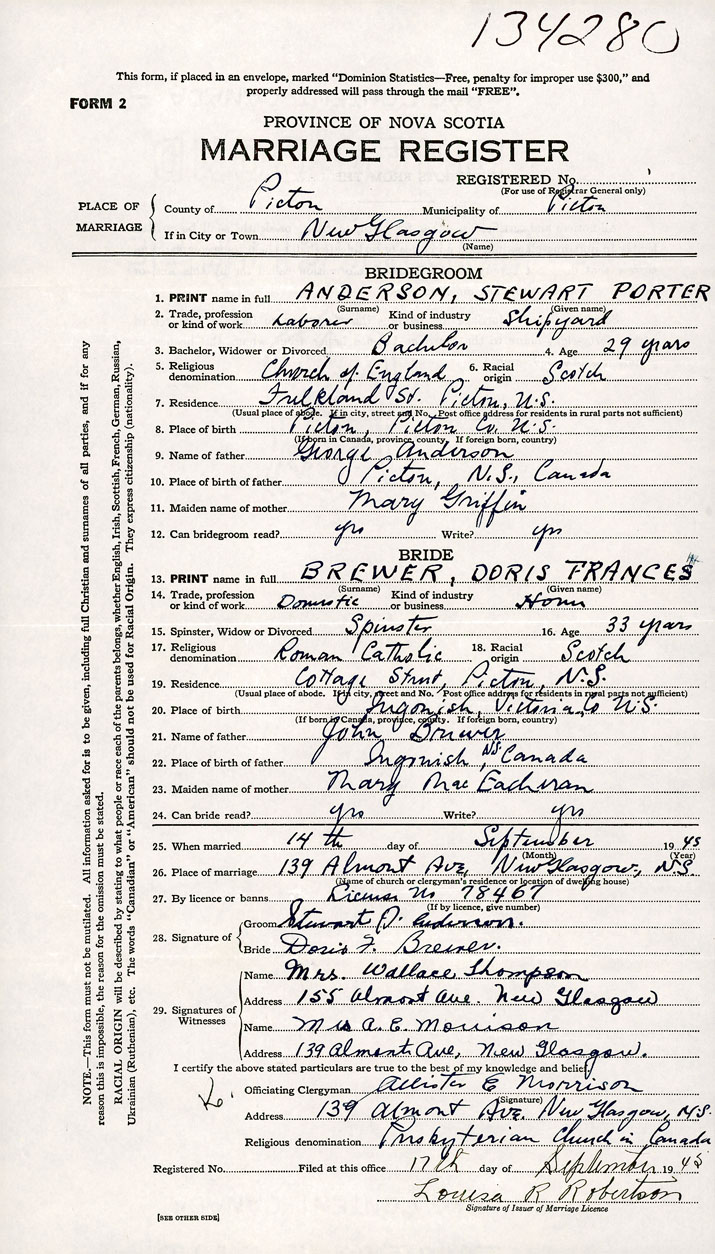 134280
This form, if placed in an envelope, marked "Dominion Statistics—Free, penalty for improper use $300," and
properly addressed will pass through the mail "FREE".
FORM 2
PROVINCE OF NOVA SCOTIA
MARRIAGE REGISTER
REGISTERED No.
(For use of Registrar General only)
PLACE OF MARRIAGE
County of Pictou Municipality of Pictou
If in City or Town New Glasgow
(Name)
BRIDEGROOM
1. PRINT name in full ANDERSON, STEWART PORTER
(Surname) (Given name)
2. Trade, profession or kind of work Laborer Kind of industry or business Shipyard
3. Bachelor, Widower or Divorced Bachelor 4. Age 29 years
5. Religious denomination Church of England 6. Racial origin Scotch
7. Residence Fulkland St. Pictou, N.S.
(Usual place of abode. If in city, street and No. Post office address for residents in rural parts not sufficient)
8. Place of birth Pictou, Pictou Co. N.S.
(If born in Canada, province, county. If foreign born, country)
9. Name of father George Anderson
10. Place of birth of father Pictou, N.S., Canada
11. Maiden name of mother Mary Griffin
12. Can bridegroom read? yes Write? yes
BRIDE
13. PRINT name in full BREWER, DORIS FRANCES
(Surname) (Given name)
14. Trade, profession or kind of work Domestic Kind of industry or business Home
15. Spinster, Widow or Divorced Spinster 16. Age 33 years
17. Religious denomination Roman Catholic 18. Racial origin Scotch
19. Residence Cottage Street, Pictou, N.S.
(Usual place of abode. If in city, street and No. Post office address for residents in rural parts not sufficient)
20. Place of birth Ingonish, Victoria Co N.S.
(If born in Canada, province, county. If foreign born, country)
21. Name of father John Brewer
22. Place of birth of father Ingonish, NS, Canada
23. Maiden name of mother Mary MacEacheran
24. Can bride read? yes Write? yes
25. When married 14th day of September 1945
(Month) (Year)
26. Place of marriage 139 Almont Ave, New Glasgow, N.S.
(Name of church or clergyman's residence or location of dwelling house)
27. By licence or banns License No 78467
(If by licence, give number)
28. Signature of
Groom Stewart P. Anderson.
Bride Doris F. Brewer.
29. Signatures of Witnesses
Name Mrs. Wallace Thompson
Address 155 Almont Ave. New Glasgow
Name Mrs A. E. Morrison
Address 139 Almont Ave, New Glasgow.
I certify the above stated particulars are true to the best of my knowledge and belief,
Officiating Clergyman Allister E Morrison
(Signature)
Address 139 Almont Ave. New Glasgow, N.S.
Religious denomination Presbyterian Church in Canada
Registered No. Filed at this office 17th day of September 1945
Louisa R Robertson
Signature of Issuer of Marriage Licence
[SEE OTHER SIDE]
NOTE.—This form must not be mutilated. All information asked for is to be given, including full Christian and surnames of all parties, and if for any
reason this is impossible, the reason for the omission must be stated.
RACIAL ORIGIN will be described by stating to what people or race each of the parents belongs, whether English, Irish, Scottish, French, German, Russian,
Ukrainian (Ruthenian), etc. The words "Canadian" or "American" should not be used for Racial Origin. They express citizenship (nationality).